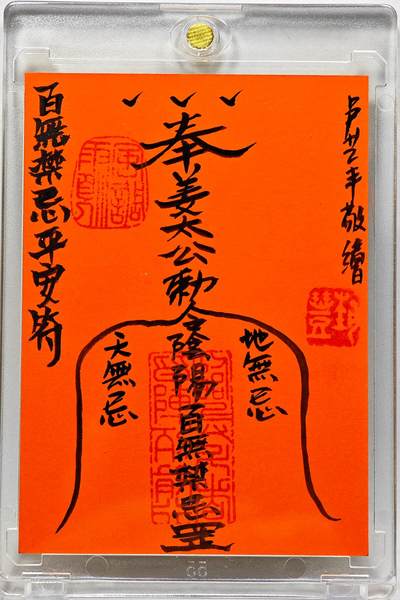 丰敬繪
奉姜太公勅令陰陽百無禁忌罡
地無忌
天無忌
百無禁忌平安符